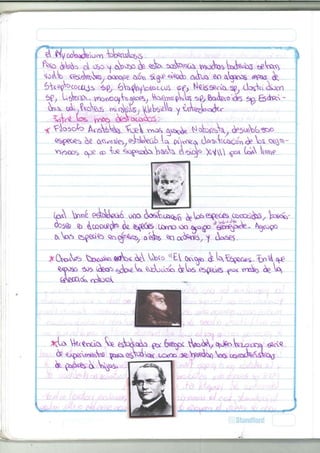 el Mycobacterium tuberculosis
Pero debido al uso y abuso de esta sustancia muchas bacterias se han
vuelto resistentes, aunque aún sigue siendo activa en algunas cepas de
Streptococcus sp, Staphylococcus sp, Neisseria sp, Clostridium
sp, Listeria monocytogenes, Haemophilus sp, Bacteroides sp, Escheri-
chia coli, Proteus mirabilis, Klebsiella y Enterobacter
Entre los más destacados:
* Filosofo Aristóteles. Fue el mas grande Naturista, describió 500
especies de animales, estableció la primera clasificación de los orga-
nismos que no fue superada hasta el siglo XVIII por Carl Linné.
Carl Linné estableció una clasificación de las especies conocidas, basán-
dose el concepto de especies como un grupo semejante. Agrupo
a las especies en géneros, a estos en ordenes, y clases.
* Charles Darwin autor del libro "El origen de la Especies. En el que
expuso sus ideas sobre la evolución de las especies por medio de la
selección natural
* La Herencia fue estudiada por Gregor Mendel, quien hizo una serie
de experimentos para estudiar como se heredan las características
de padres a hijos.
Standford